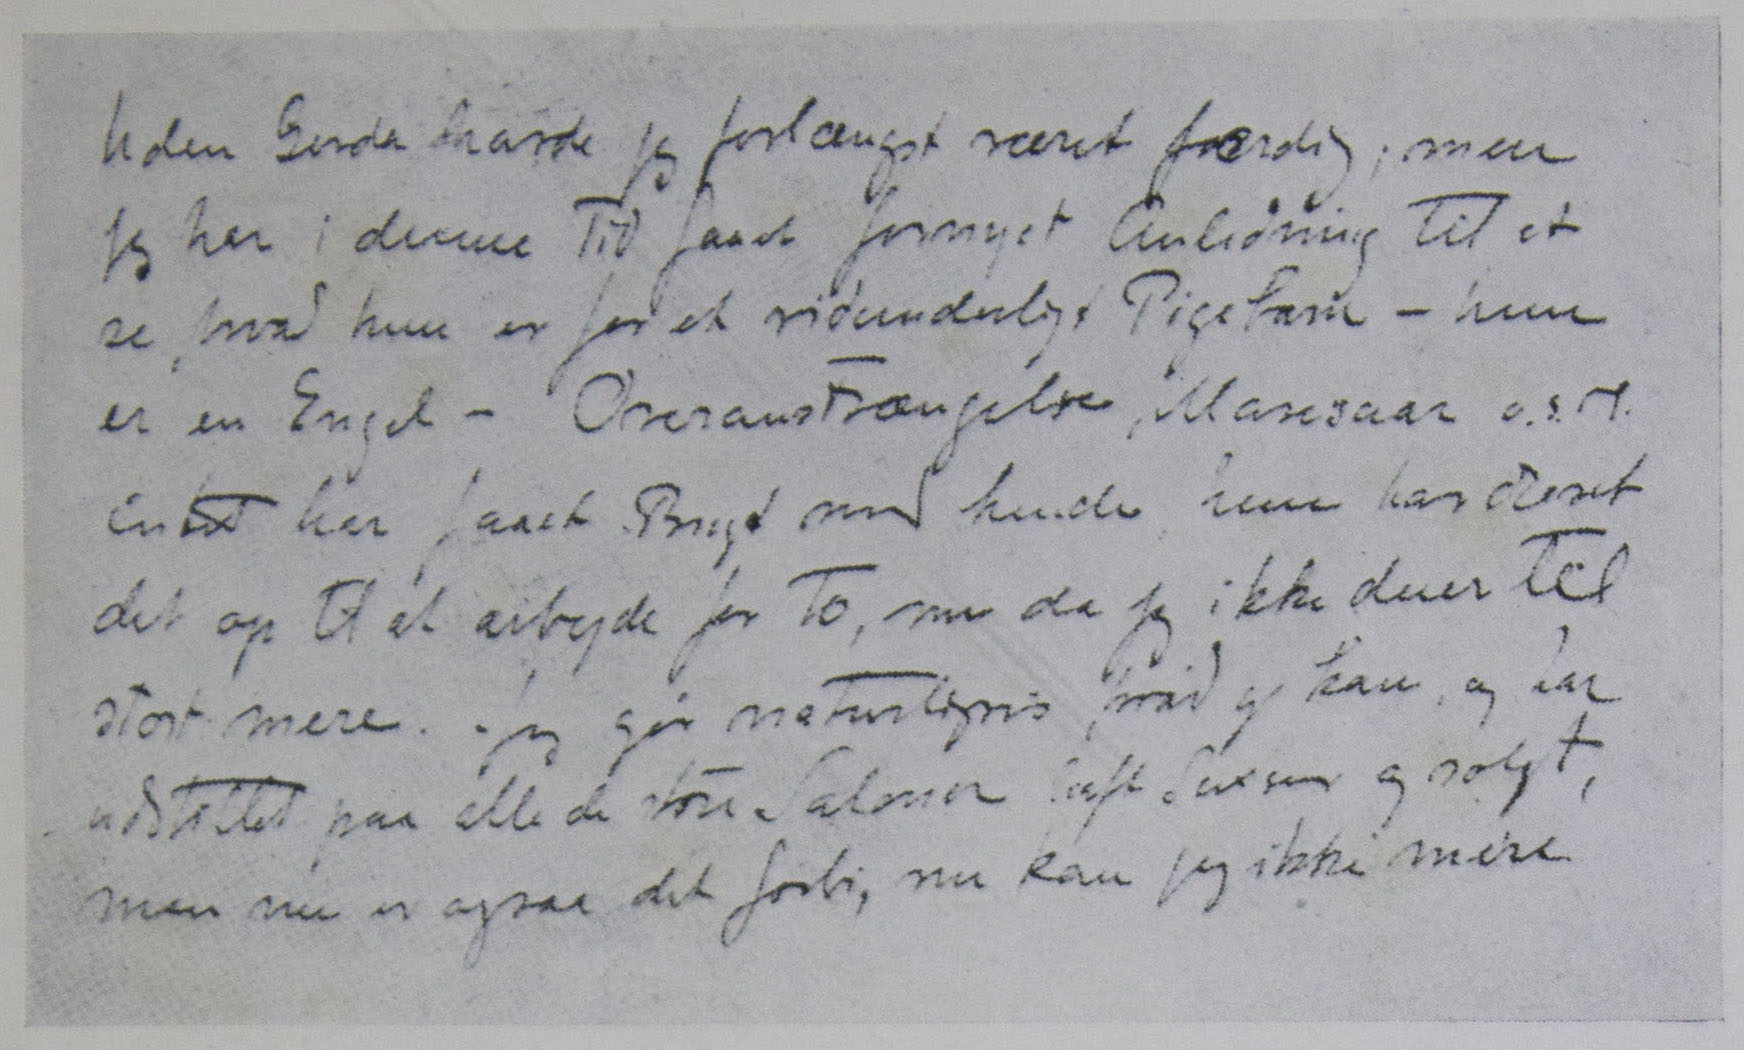 Uden Gerda havde jeg forlængst været færdig, men
jeg har i denne Tid faaet fornyet Anledning til at
se hvad hun er for et vidunderligt Pigebarn – hun
er en Engel – Overanstrængelse, Maresaar o.s.v.
intet har faaet Bugt med hende hun har drevet
det op til at arbejde for to, nu da jeg ikke duer til
stort mere. Jeg gør naturligvis hvad jeg kan, og har
udstillet paa alle de store Saloner haft Sukses og solgt,
men nu er ogsaa det forbi, nu kan jeg ikke mere